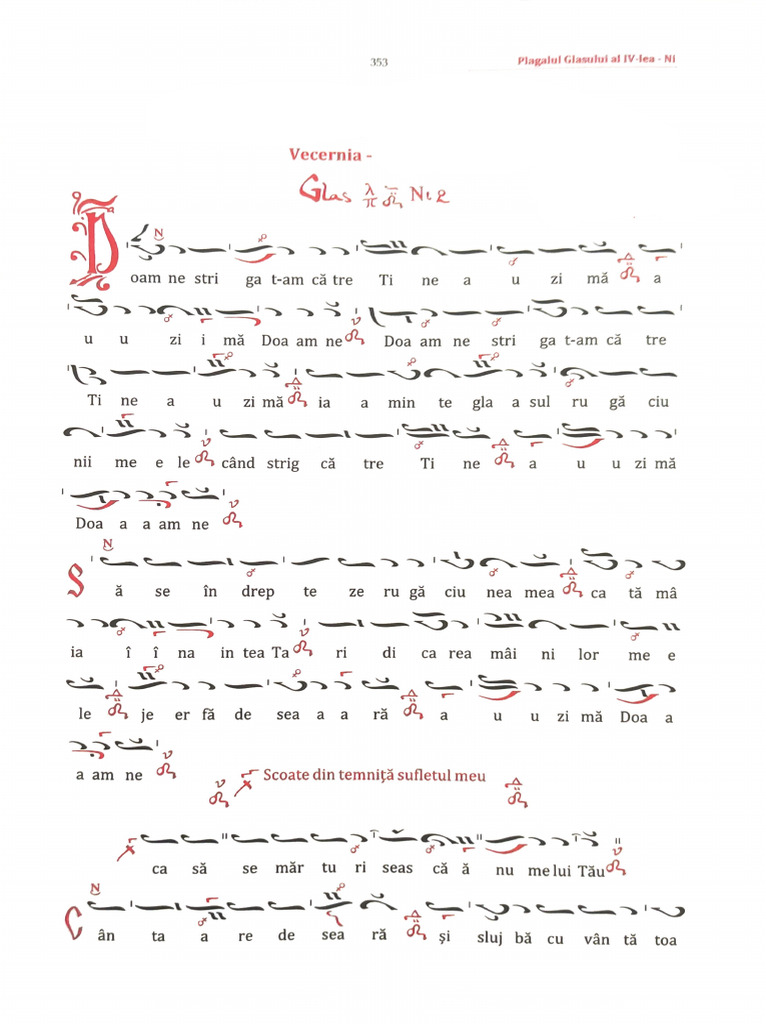 353 Plagalul Glasului al IV-lea - Ni
Vecernia -
Glas λ π Ni
Doam ne stri ga t-am că tre Ti ne a u zi mă a
u u zi i mă Doa am ne Doa am ne stri ga t-am că tre
Ti ne a u zi mă ia a min te gla a sul ru gă ciu
nii me e le când strig că tre Ti ne a u u zi mă
Doa a a am ne
Să se în drep te ze ru gă ciu nea mea ca tă mâ
ia î î na in tea Ta ri di ca rea mâi ni lor me e
le je er fă de sea a a ră a u u zi mă Doa a
a am ne
Scoate din temniță sufletul meu
ca să se măr tu ri seas că ă nu me lui Tău
Cân ta a re de sea ră și sluj bă cu vân tă toa